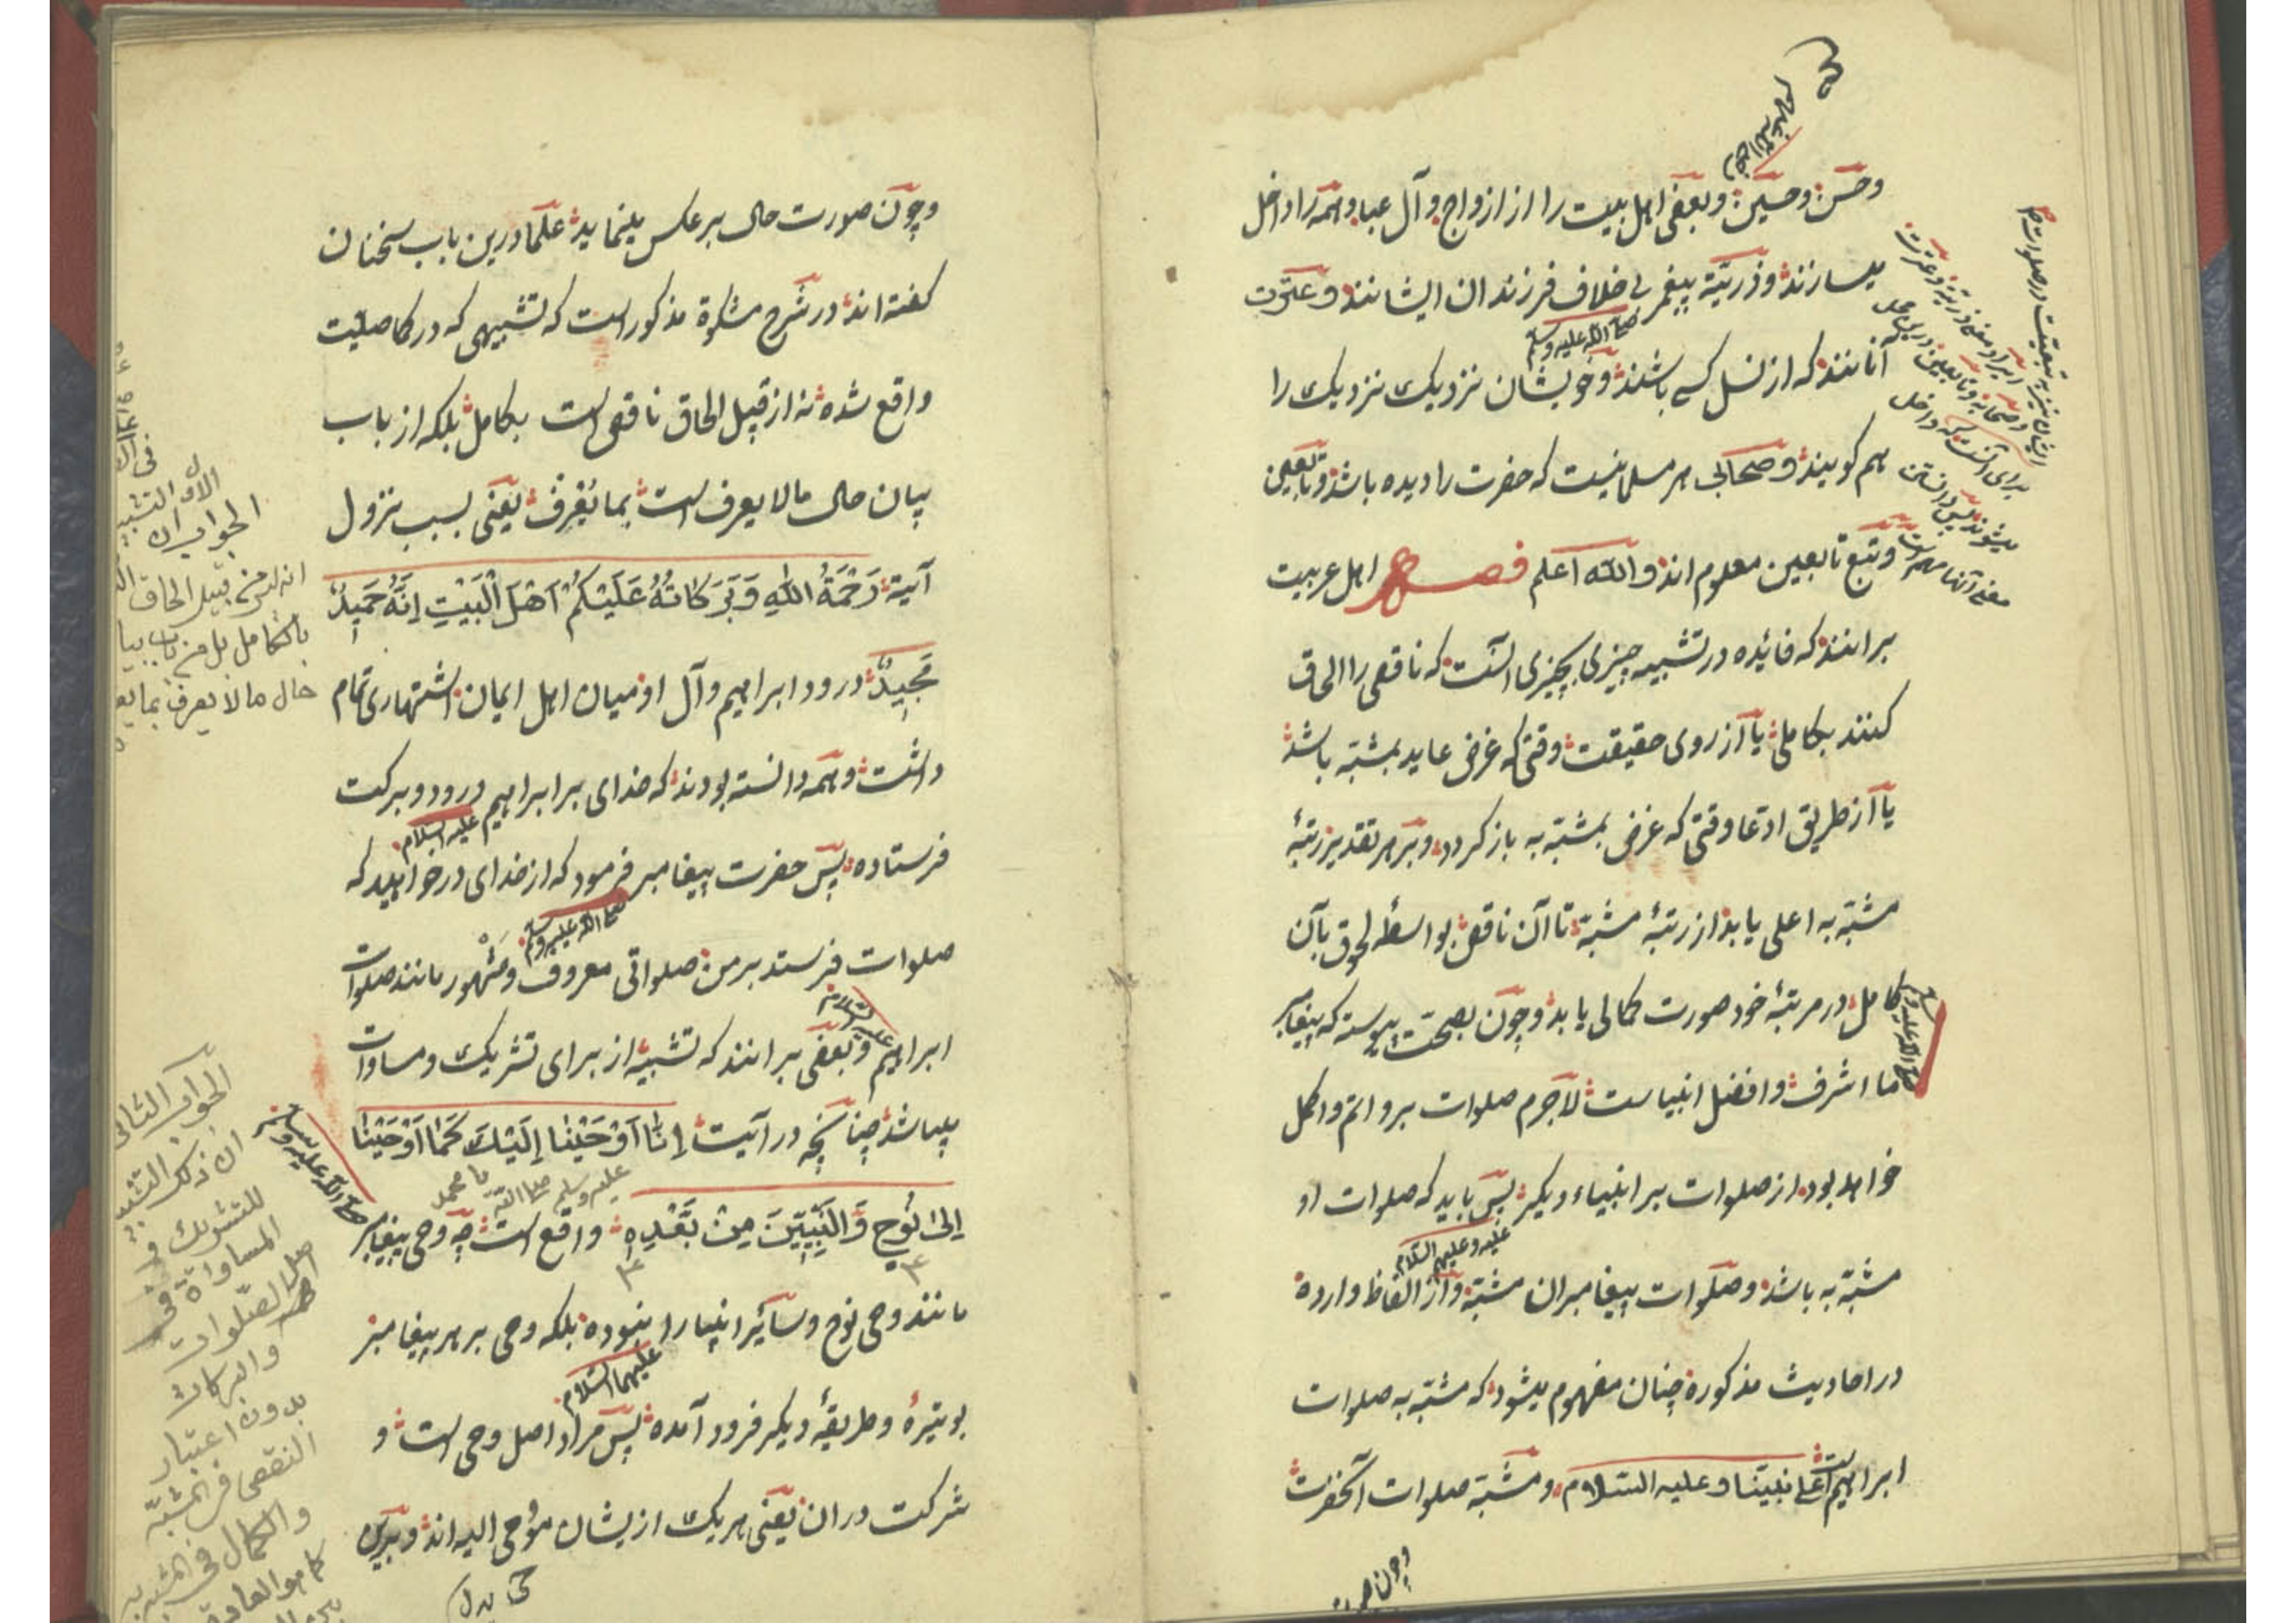 وحسن وحسین وبعضی اهل بیت را از ازواج وآل عبا وهمه را داخل
میسازند وذریّة پیغمبر بی خلاف فرزندان ایشانند وعترت
صلی الله علیه وسلم
آنانند که از نسل کسی باشند وخویشان نزدیک نزدیک را
هم گویند وصحابی هر مسلمانیست که حضرت را دیده باشد وتابعین
وتبع تابعین معلوم اند والله اعلم فصل اهل عربیت
برانند که فائده در تشبیه چیزی بچیزی آنست که ناقص را الحاق
کنند بکاملی یا از روی حقیقت وقتی که غرض عاید بمشبّه باشد
یا از طریق ادّعا وقتی که غرض بمشبّه به بازگردد وبر هر تقدیر رتبهٔ
مشبّه به اعلی یابد از رتبهٔ مشبّه تا آن ناقص بواسطهٔ لحوق بآن
کامل در مرتبهٔ خود صورت کمالی یابد وچون بصحّت پیوسته که پیغامبر
صلی الله علیه وسلم
ما اشرف وافضل انبیاست لاجرم صلوات برو اتم واکمل
خواهد بود از صلوات بر انبیاء دیگر پس باید که صلوات او
علیه وعلیهم السّلام
مشبّه به باشد وصلوات پیغامبران مشبّه واز الفاظ وارده
در احادیث مذکوره چنان مفهوم میشود که مشبّه به صلوات
ابراهیم است علی نبیّنا وعلیه السّلام ومشبّه صلوات آنحضرت
وچون صورت
ایشان نیز به تبعیت در صلوات
ایراد معنی ذریّة وعترت
وصحابه وتابعین درین محل
برای آنست که داخل
میشوند پس دانستن
معنی آنها
وچون صورت حال برعکس مینماید علما درین باب سخنان
گفته اند در شرح مشکوة مذکور است که تشبیهی که در کما صلیت
واقع شده نه از قبیل الحاق ناقص است بکامل بلکه از باب
بیان حال مالا یعرف است بما یُعْرف یعنی بسبب نزول
آیة رَحْمَةُ اللهِ وَبَرَكَاتُهُ عَلَيْكُمْ اَهْلَ الْبَيْتِ اِنَّهُ حَمِيدٌ
مَجِيدٌ درود ابراهیم وآل او میان اهل ایمان اشتهاری تمام
داشت وهمه دانسته بودند که خدای بر ابراهیم درود وبرکت
علیه السّلام
فرستاده پس حضرت پیغامبر فرمود که از خدای درخواهید که
صلی الله علیه وسلم
صلوات فرستد بر من صلواتی معروف ومشهور مانند صلوات
ابراهیم وبعضی برانند که تشبیه از برای تشریک ومساوات
علیه السّلام
میباشد چنانچه در آیت اِنَّا اَوْحَيْنَا اِلَيْكَ كَمَا اَوْحَيْنَا
یا محمد صلی الله علیه وسلم
اِلَى نُوحٍ وَالنَّبِيِّينَ مِنْ بَعْدِهِ واقع است چه وحی پیغامبر
صلی الله علیه وسلم
مانند وحی نوح وسائر انبیا را نبوده بلکه وحی بر هر پیغامبر
علیهما السّلام
بوتیرهٔ وطریقهٔ دیگر فرود آمده پس مراد اصل وحی است و
شرکت در ان یعنی هریک ازیشان مُوحی الیه اند وبرین
الاول
الجواب ان التشبیه
انه لیس من قبیل الحاق
بالکامل بل من باب بیا
حال مالا یعرف بما یعر
الجواب الثانی
ان ذکر التشبیه
للتشریک فی
المساواة فی
اصل الصّلوات
والبرکات
بدون اعتبار
النقص فی المشبّه
والکمال فی المشبه به
کما هو العادة